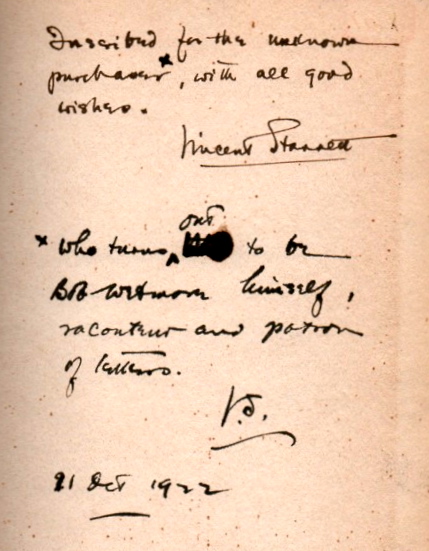 Inscribed for the unknown
purchaser*, with all good
wishes.
Vincent Starrett
* who turns out to be
Bob Wetmore himself,
raconteur and patron
of letters.
V.S.
21 Oct 1922